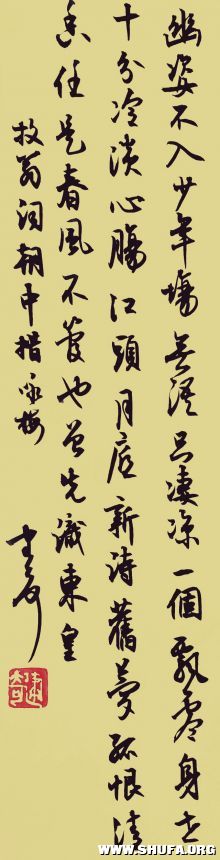 幽姿不入少年場無語只凄凉一個飄零身世
十分冷淡心腸江頭月底新詩舊夢孤恨清
香任是春風不管也曾先識東皇
放翁詞朝中措詠梅
WWW.SHUFA.ORG